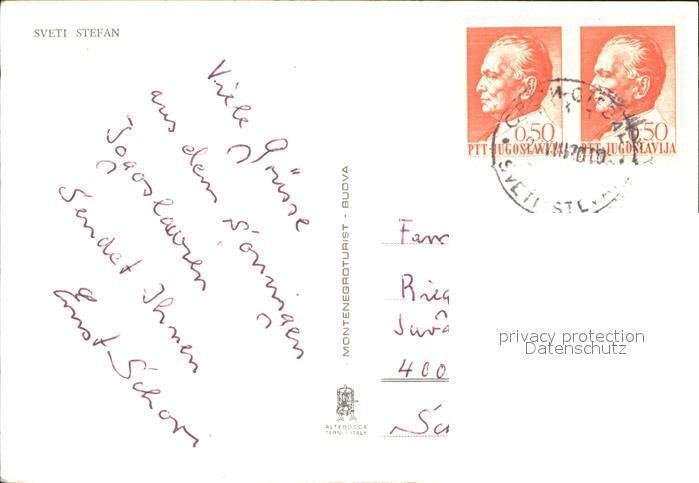 SVETI STEFAN
Viele Grüsse
aus dem sonnigen
Jogoslavien
Sendet Ihnen
Ernst
MONTENEGROTURIST - BUDVA
ALTEROCCA
TERNI - ITALY
0,50
PTT-JUGOSLAVIJA
0,50
PTT-JUGOSLAVIJA
SVETI STEFAN
Fam
Rieg
400
privacy protection
Datenschutz